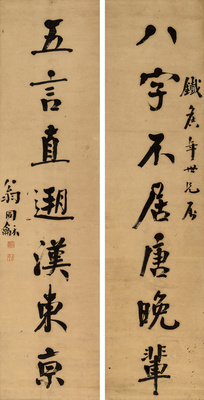 鐵年世兄屬
八字不居唐晚輩
五言直遡漢東京
翁同龢